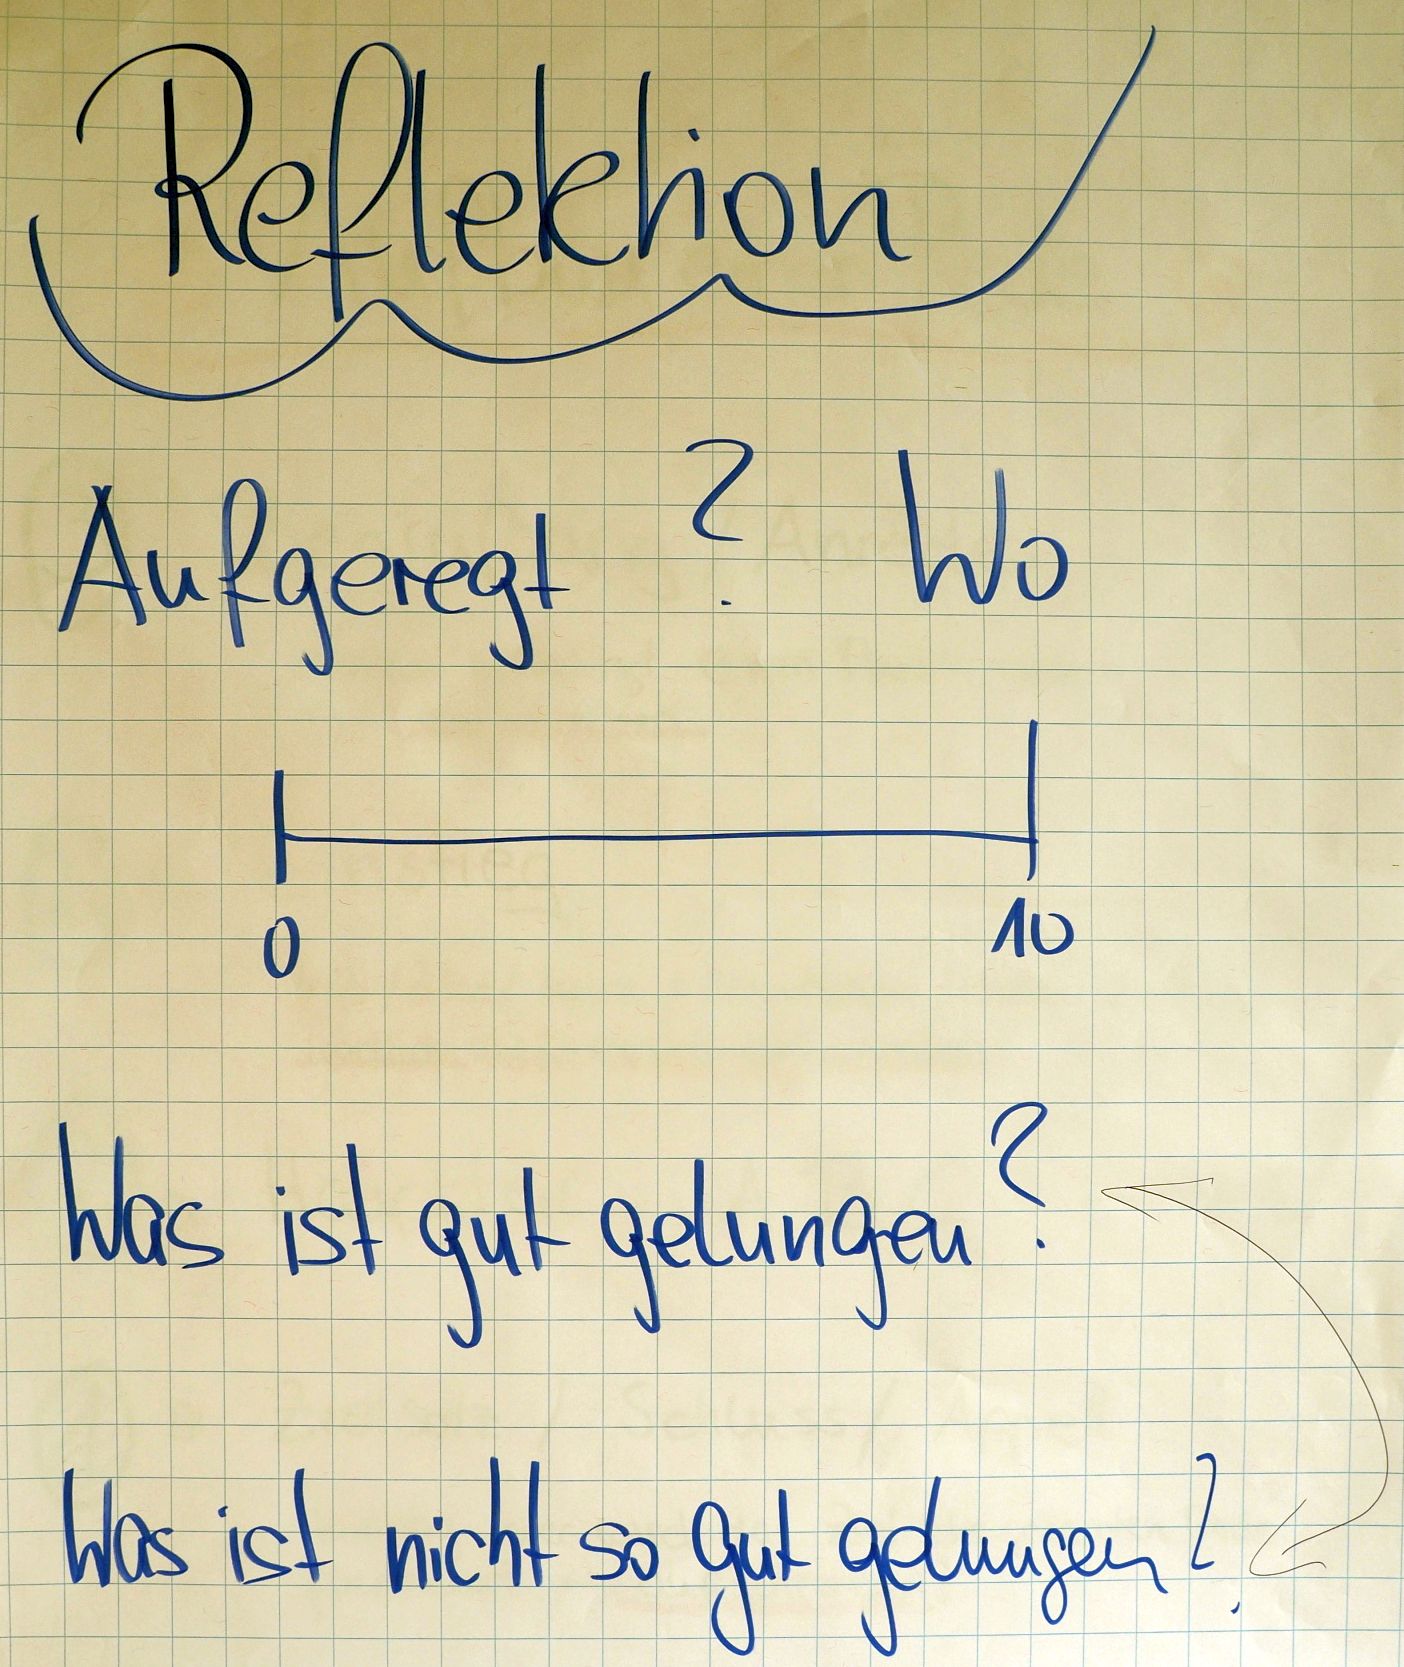 Reflektion
Aufgeregt ? Wo
0 10
Was ist gut gelungen?
Was ist nicht so gut gelungen?